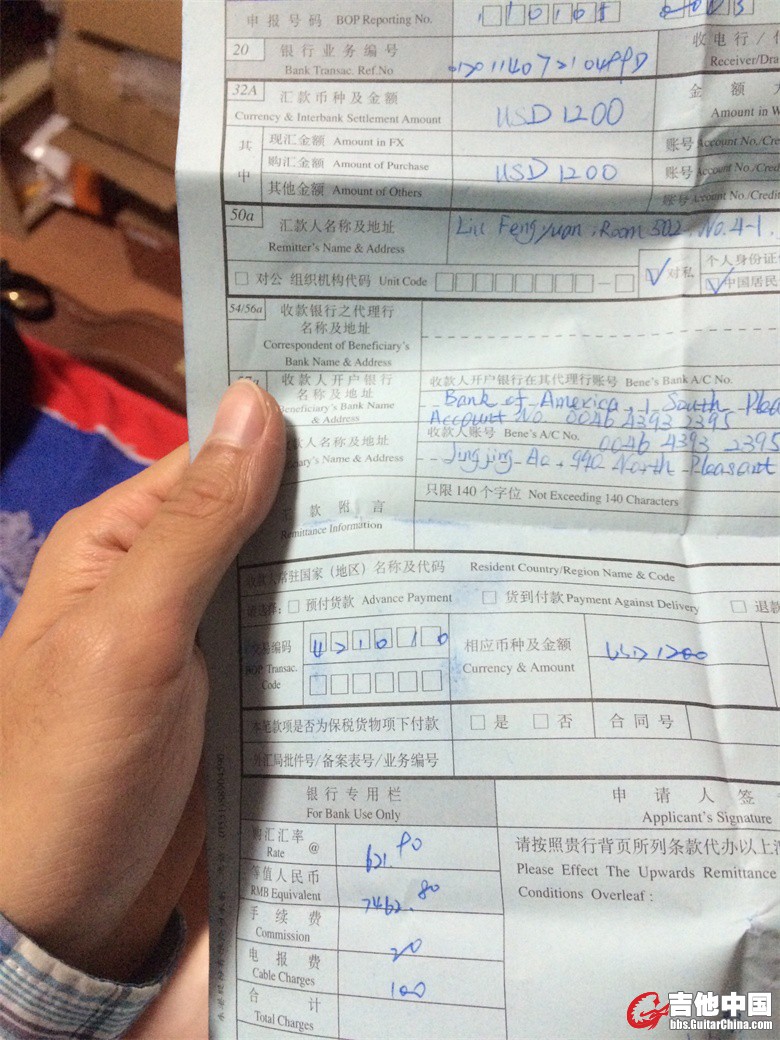 申报号码 BOP Reporting No.
20 银行业务编号
Bank Transac. Ref.No
收电行/
Receiver/Dra
32A 汇款币种及金额
Currency & Interbank Settlement Amount
USD 1200
金额
Amount in W
其中
现汇金额 Amount in FX
账号 Account No./Cre
购汇金额 Amount of Purchase
USD 1200
账号 Account No./Credi
其他金额 Amount of Others
账号 Account No./Credi
50a 汇款人名称及地址
Remitter's Name & Address
Room 502, No. 4-1,
对公 组织机构代码 Unit Code
对私
个人身份证
中国居民
54/56a 收款银行之代理行
名称及地址
Correspondent of Beneficiary's
Bank Name & Address
收款人开户银行
名称及地址
Beneficiary's Bank Name
& Address
收款人开户银行在其代理行账号 Bene's Bank A/C No.
Bank of America, 1 South Plea
Account No. 0046 4393 2395
人名称及地址
ary's Name & Address
收款人账号 Bene's A/C No. 0046 4393 2395
Jingjing Ao, 990 North Pleasant
款附言
Remittance Information
只限140个字位 Not Exceeding 140 Characters
收款人常驻国家（地区）名称及代码 Resident Country/Region Name & Code
请选择： 预付货款 Advance Payment 货到付款 Payment Against Delivery 退款
交易编码
BOP Transac.
Code
相应币种及金额
Currency & Amount
USD 1200
本笔款项是否为保税货物项下付款 是 否 合同号
外汇局批件号/备案表号/业务编号
银行专用栏
For Bank Use Only
申请人签
Applicant's Signature
购汇汇率
Rate @
621.90
等值人民币
RMB Equivalent
7462.80
手续费
Commission
20
电报费
Cable Charges
100
合计
Total Charges
请按照贵行背页所列条款代办以上
Please Effect The Upwards Remittance
Conditions Overleaf :
吉他中国
bbs.GuitarChina.com